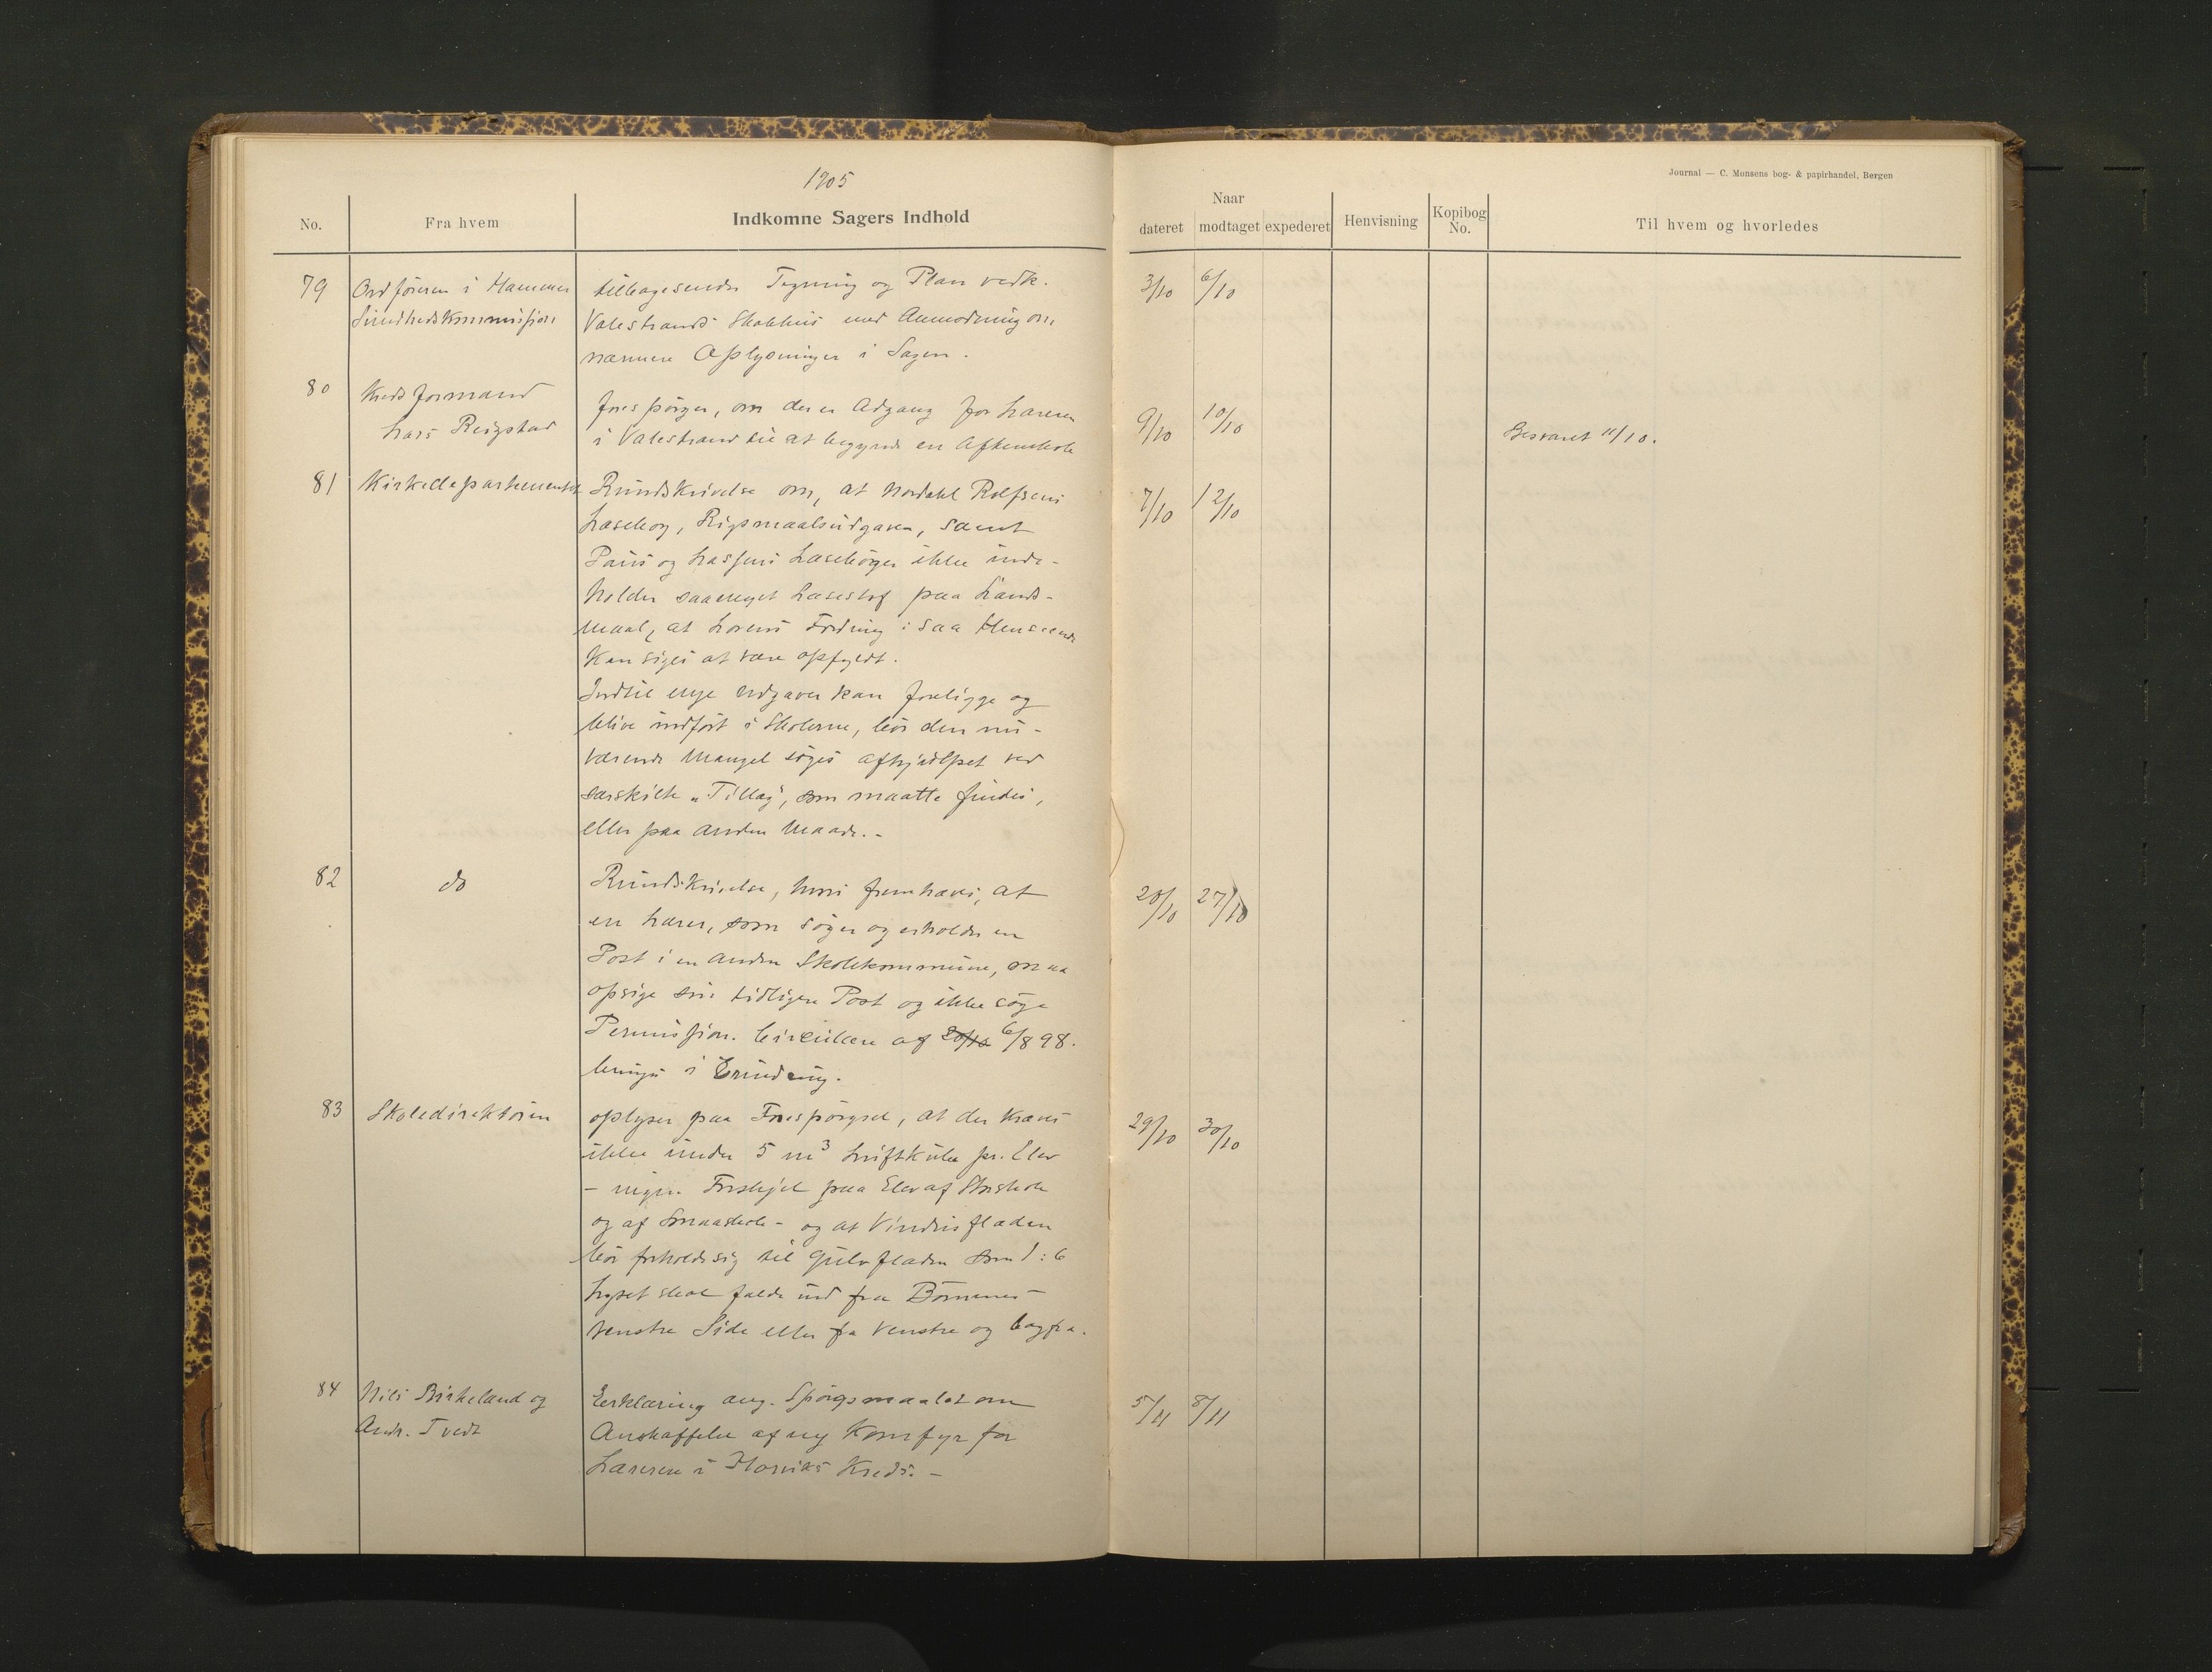 1905
Journal — C. Monsens bog- & papirhandel, Bergen
No.
Fra hvem
Indkomne Sagers Indhold
Naar
dateret
modtaget
expederet
Henvisning
Kopibog
No.
Til hvem og hvorledes
79
Ordføreren i Hammer
Sundhedskommission
tilbagesender Tegning og Plan vedk.
Valestrands Skolehus med Anmodning om
nærmere Oplysninger i Sagen.
3/10
6/10
80
Kredsformand
Lars Reigstad
forespørger, om der er Adgang for Læreren
i Valestrand til at begynde en Aftenskole
9/10
10/10
Besvaret 11/10.
81
Kirkedepartementet
Rundskrivelse om, at Nordahl Rolfsens
Læsebog, Rigsmaalsudgaven, samt
Pauss og Lassens Læsebøger ikke inde-
holder saameget Læsestof paa Lands-
maal, at Lovens Fordring i saa Henseende
kan siges at være opfyldt.
Indtil nye Udgaver kan foreligge og
blive indført i Skolerne, bør den nu-
værende Mangel søges afhjælpet ved
særskilte "Tillæg", som maatte findes,
eller paa anden Maade.-
7/10
12/10
82
do
Rundskrivelse, hvori fremhæves, at
en Lærer, som søger og erholder en
Post i en anden Skolekommune, maa
opsige sin tidligere Post og ikke søge
Permission. Circulære af 20/10 6/8 98.
bringes i Erindring.
20/10
27/10
83
Skoledirektøren
oplyser paa Forespørgsel, at der kræves
ikke under 5 m³ Luftkube pr. Elev
- ingen Forskjel paa Elev af Storskole
og af Smaaskole - og at Vindusfladen
bør forholde sig til Gulvfladen som 1:6
Lyset skal falde ind fra Børnenes
venstre Side eller fra venstre og bagfra.
29/10
30/10
84
Nils Birkeland og
Andr. Tvedt
Erklæring ang. Spørgsmaalet om
Anskaffelse af ny Komfyr for
Læreren i Horviks Kreds. -
5/11
8/11